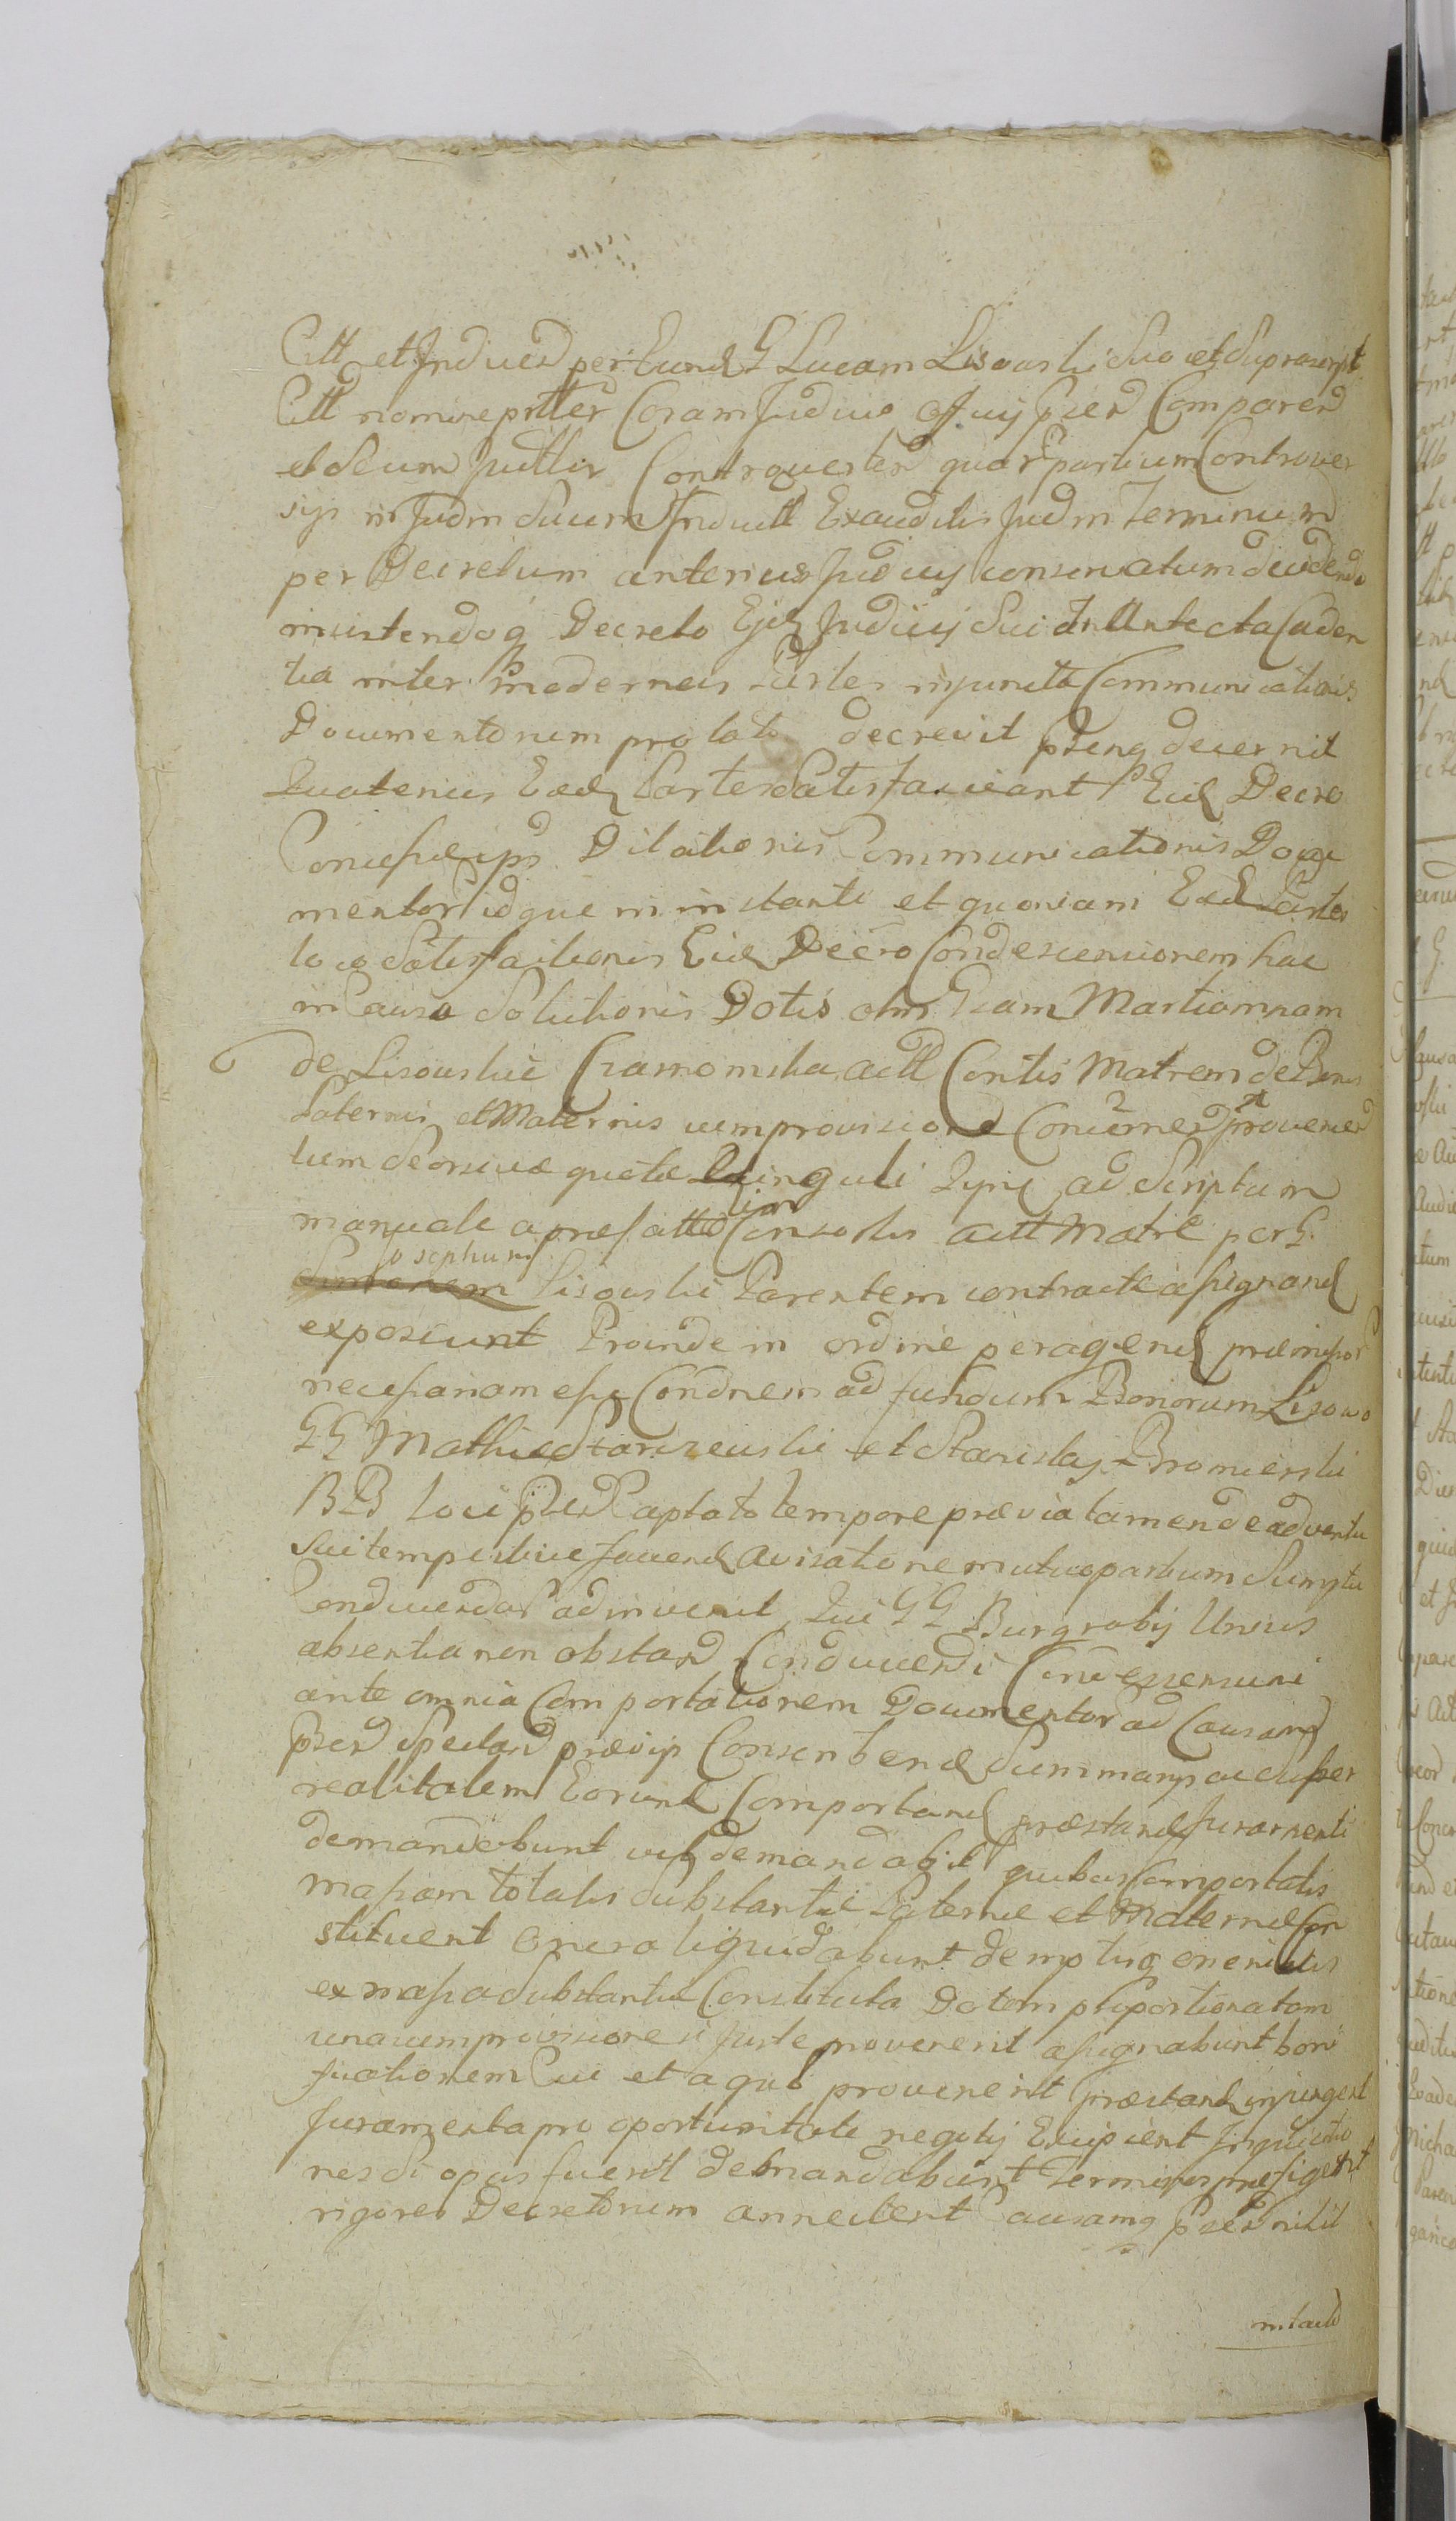 Citt et Inducd per Eund G Lucam Lisowski suo et suprascript
Citt nomine prtter Coram Judicio Offcij Pserd Comparerd
et secum Juttir Controvertend quar partium Controver
sijs in Judm suum Inductt Exauditis Judm Terminum
per Decretum anterius Judicij conservatum decidendo
insistendoq Decreto Ejd Judicij Sui In Antecta Caden
tia inter modernas Partes injuncta Communicationis
Documentorum prolato decrevit Psensq decernit
Quatenus Eaed Partes satisfaciant Eid Decro
Concessae ips Dilationis Communicationis Docu
mentor idque in instanti et quoniam Eaed Partes
loco satisfactionis Eid Decro Condescensionem hac
in Causa Solutionis Dotis olim Gsam Martiannam
de Lisowskie Chamomska actt Contis Matrem de Bonis
Paternis et Maternis cum provisione Concernend provenien
tum seorsivae quotae Singuli Tyni ad Scriptum
manuale a praefatto olim Consortis actt Matre per G
Josephum
Simonem Lisowski Parentem contracte assignand
exposcunt Proinde in ordine peragend praemissor
necessariam esse Condnem ad fundum Bonorum Lisowo
GG Mathiae Staniszewski et Stanislaj Bromierski
BB loci Pserd Captato tempore praevia tamen de adventu
sui tempestive faciend avisatione mutuo partium Sumptu
Conducendor adinvenit Qui GG Burgrabij Unius
absentia non obstand Conducendi Condescensuri
ante omnia Comportationem Documentor ad Causamq
Pserd spectand praevijs Conscribend Summarijs ac super
realitatem Eorund Comportand praestand Juramenti
demandabunt uti demandabit quibus Comportatis
massam totalis substantiae Paternae et Maternae Con
stituent Onera liquidabunt demptisq oneribus
ex massa substantiae Constituta Dotem proportionatam
unacum provisione si Juste provenerit assignabunt boni
ficationem Cui et a quo provenerit praestand injungent
Juramenta pro oportunitate negotij Excipient Inquisitio
nes si opus fuerit demandabunt Terminos praefigent
rigores Decretorum annectent Causamq Pserd nihil
intacte